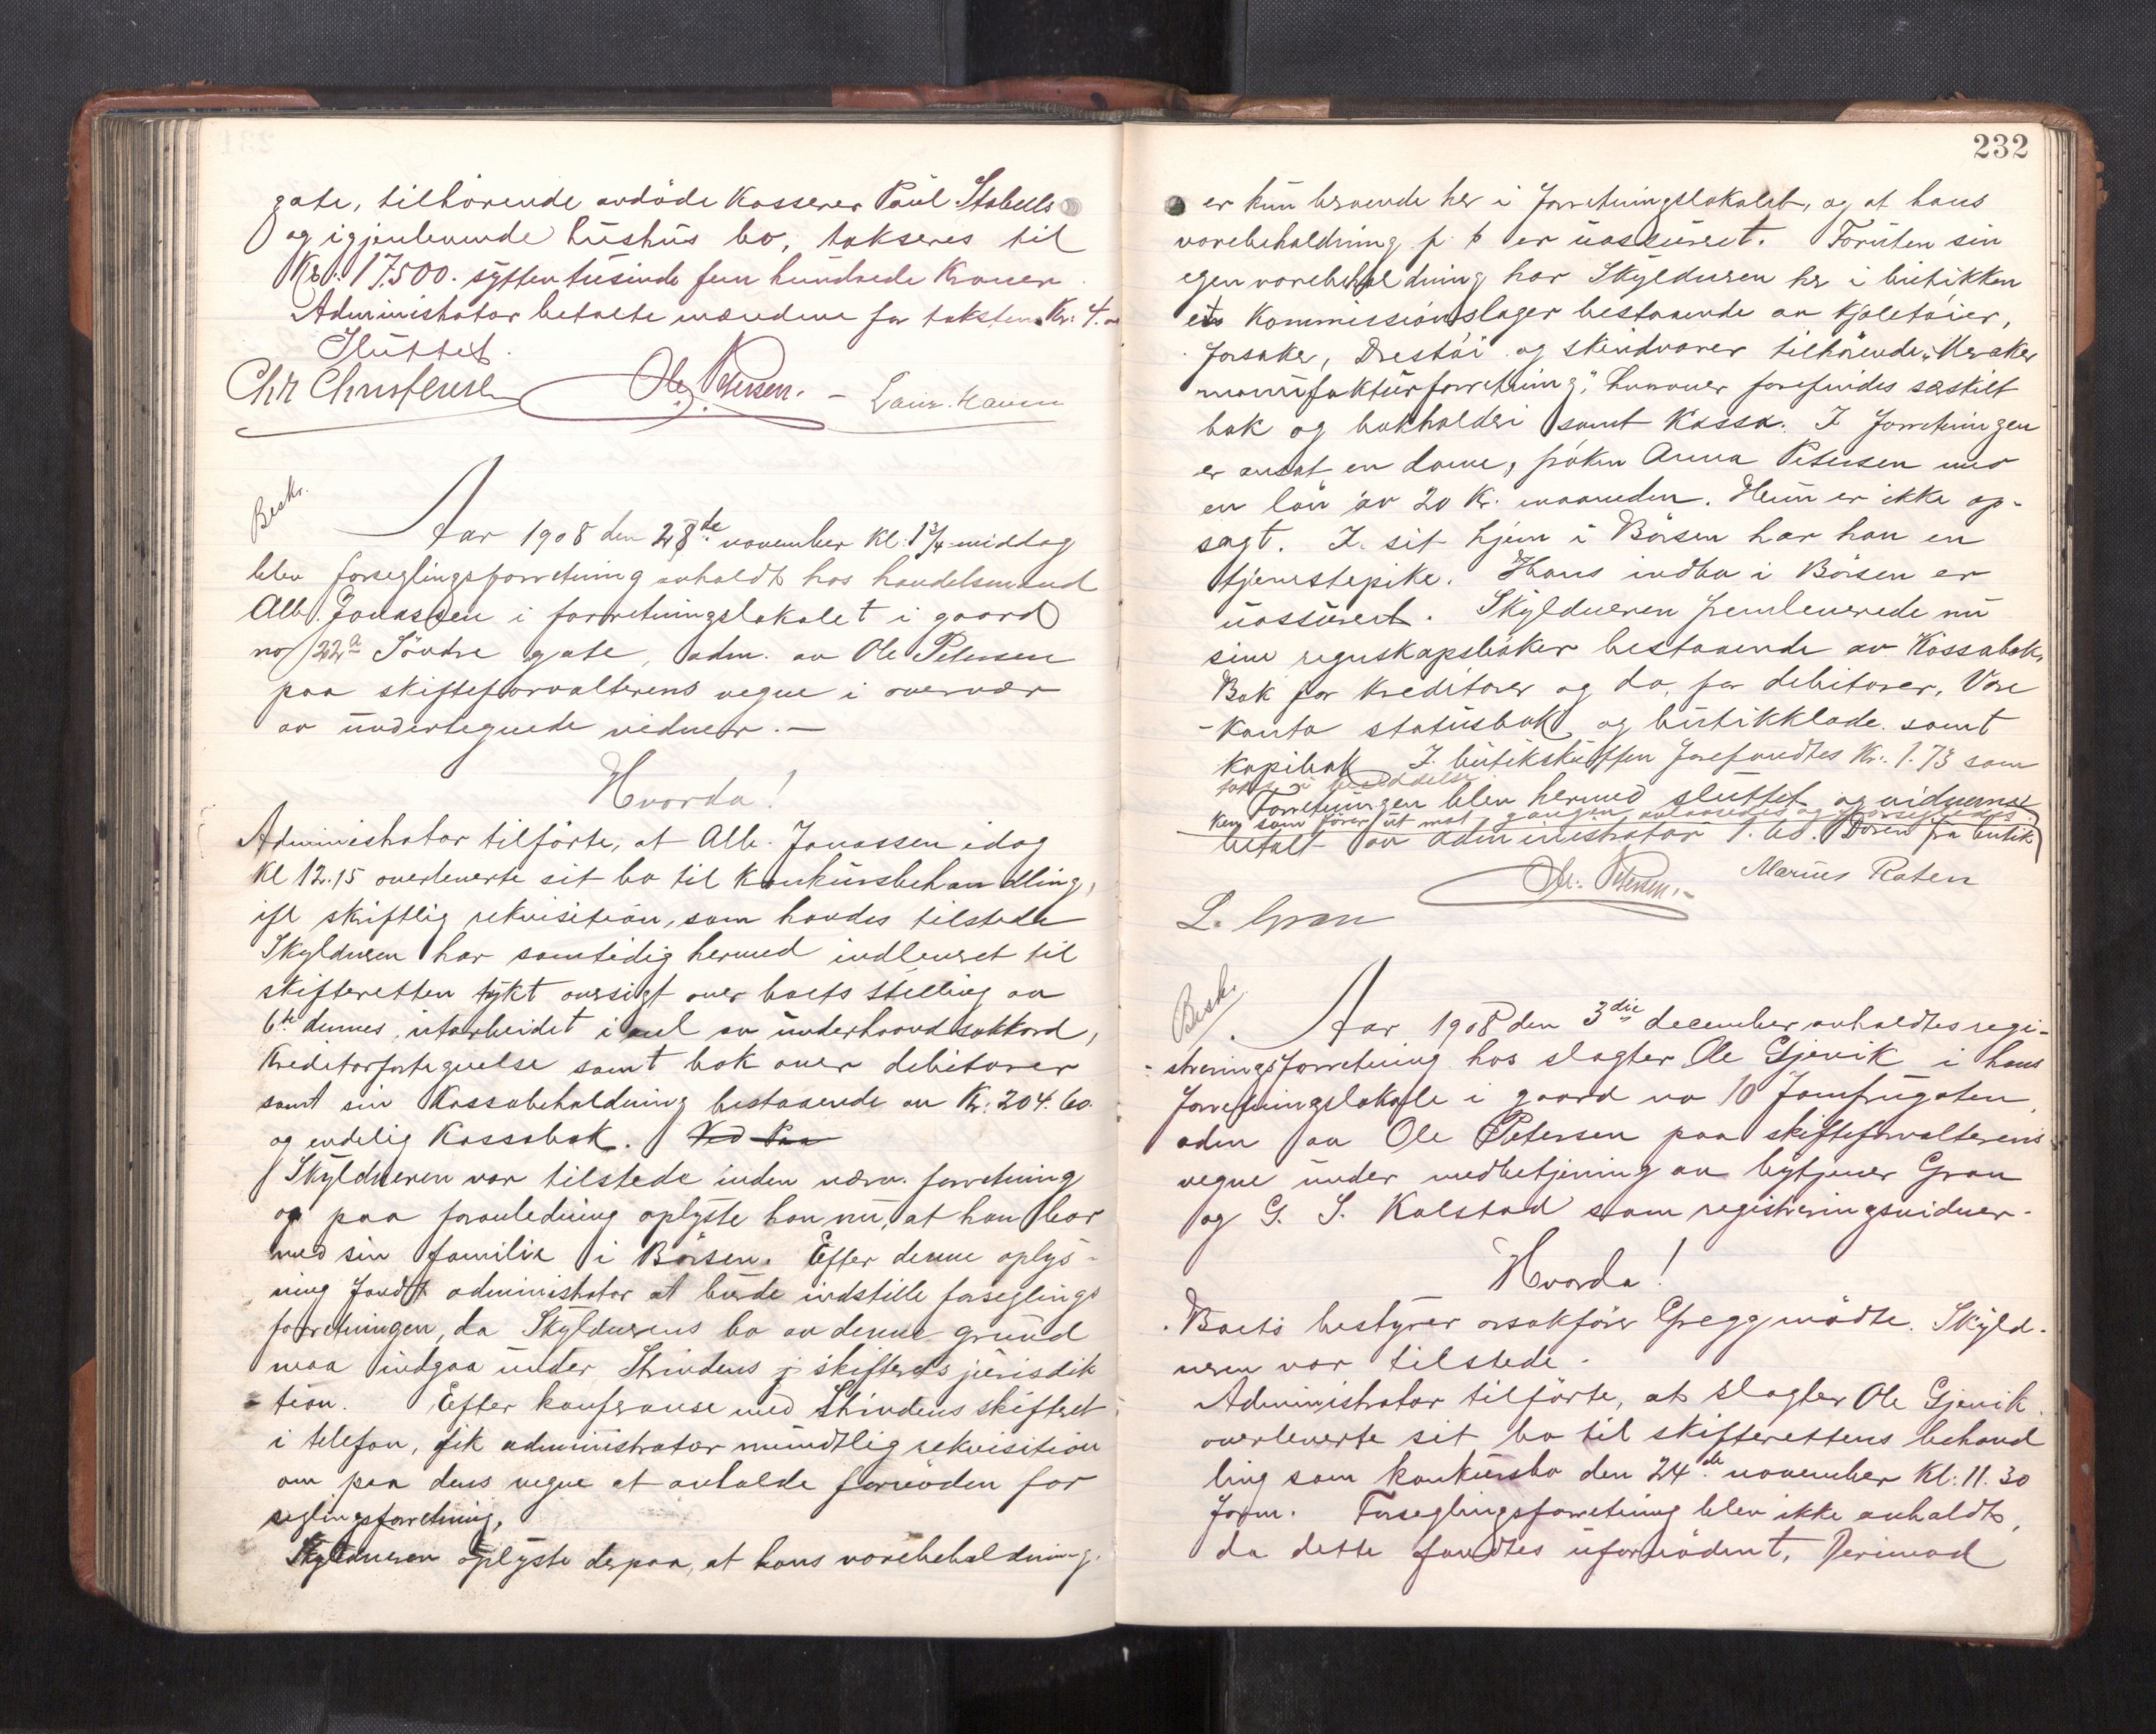 gate, tilhörende avdöde Kasserer Paul Stabells
og igjenlevende hushus bo, takseres til
Kr: 17500. sytten tusinde fem hundrede Kroner.
Administrator betalte mændene for taksten Kr: 4.
Sluttet.
Chr Christensen Ole Petersen. -
Beskr.
Aar 1908 den 28de november Kl: 1 3/4 middag
blev forseglingsforretning avholdt hos handelsmand
Alb. Jonassen i forretningslokalet i gaard
no 22a Söndre gate, adm. av Ole Petersen
paa skifteforvalterens vegne i overvær
av undertegnede vidner. -
Hvorda!
Administrator tilförte, at Alb. Jonassen idag
Kl 12.15 overleverte sit bo til Konkursbehandling,
ifl skriftlig rekvisition, som havdes tilstede
Skyldneren har samtidig hermed indleveret til
skifteretten trykt oversigt over boets stilling av
6te dennes, utarbeidet i anl av underhaandsakkord,
Kreditorfortegnelse samt bok over debitorer
samt sin Kassabeholdning bestaaende av Kr: 204.60.
og endelig Kassabok. Ved Paa
Skyldneren var tilstede under nærv. forretning
og paa foranledning oplyste han nu, at han bor
med sin familie i Börsen. Efter denne oplys-
ning fandt administrator at burde indstille forseglings
forretningen, da Skyldnerens bo av denne grund
maa indgaa under Strindens j skifterets jurisdik
tion. Efter konferanse med Strindens skifteret
i telefon, fik administrator mundtlig rekvisition
om paa dens vegne at avholde fornöden for
seglingsforretning.
Skyldneren oplyste derpaa, at hans varebeholdning
232
er kun beroende her i forretningslokalet, og at hans
varebeholdning p. t er uassureret. Foruten sin
egen varebeholdning har Skyldneren her i butikken
et Kommissionslager bestaaende av Kjoletöier,
forsake, Drestöi og skindvarer tilhörende „Meraker
manufakturforretning," hvorover forefindes særskilt
bok og bokholderi samt Kassa. I forretningen
er ansat en dame, fröken Anna Petersen med
en lön av 20 Kr. maaneden. Hun er ikke op-
sagt. I sit hjem i Börsen har han en
tjenestepike. Hans indbo i Börsen er
uassureret. Skyldneren fremleverede nu
sine regnskapsböker bestaaende av Kassabok,
Bok for Kreditorer og do. for debitorer, Vare
-Konto statusbok og butikklade samt
Kopibok I butikskuffen forefandtes Kr: 1.73 som
toges i besiddelse
Forretningen blev hermed sluttet og vidnerne
ken som förer ut mot gangen avlaasedes og forsegledes
betalt av administrator 1.60. Dören fra butik
Ole Petersen. - Marius Raten
L. Gran
Beskr.
Aar 1908 den 3die december avholdtes regi-
streringsforretning hos slagter Ole Gjervik i hans
forretningslokale i gaard no 10 Jomfrugaten,
adm av Ole Petersen paa skifteforvalterens
vegne under medbetjening av bytjener Gran
og G. S. Kalstad som registreringsvidner.
Hvorda!
Boets bestyrer orsakförer Gregg mödte. Skyld-
neren var tilstede.
Administrator tilförte, at slagter Ole Gjervik
overleverte sit bo til skifterettens behand
ling som konkursbo den 24de november Kl: 11.30
form. Forseglingsforretning blev ikke avholdt,
da dette fandtes ufornödent. Derimod